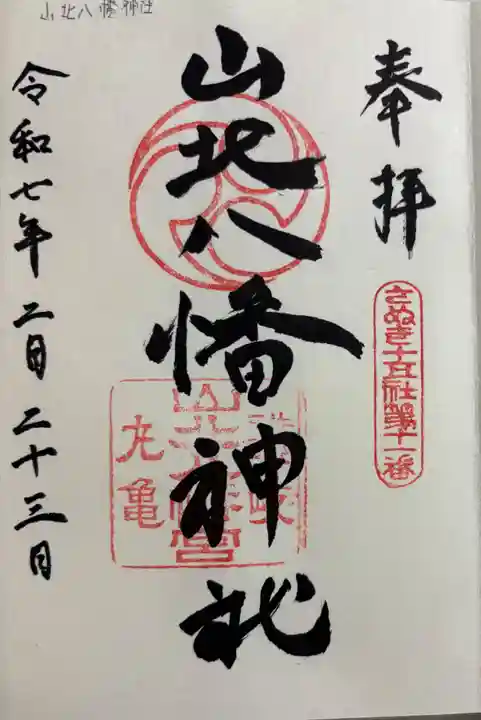 山北八幡神社
奉拝
さぬき十五社第十一番
山北八幡神社
讃岐
山北八幡宮
丸亀
令和七年二月二十三日